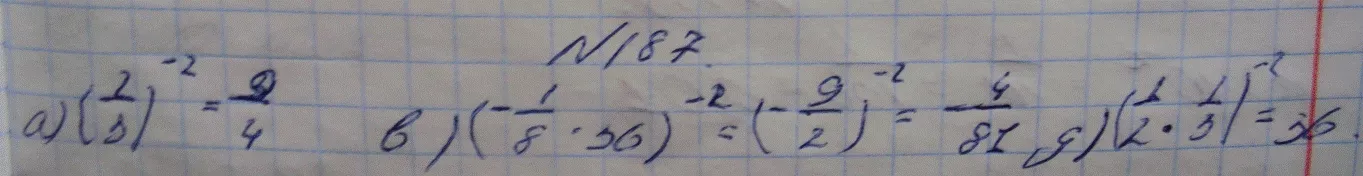 N187.
а) (2/3)^-2 = 9/4 в) (-1/8 · 36)^-2 = (-9/2)^-2 = -4/81, д) (1/2 · 1/3)^-2 = 36.